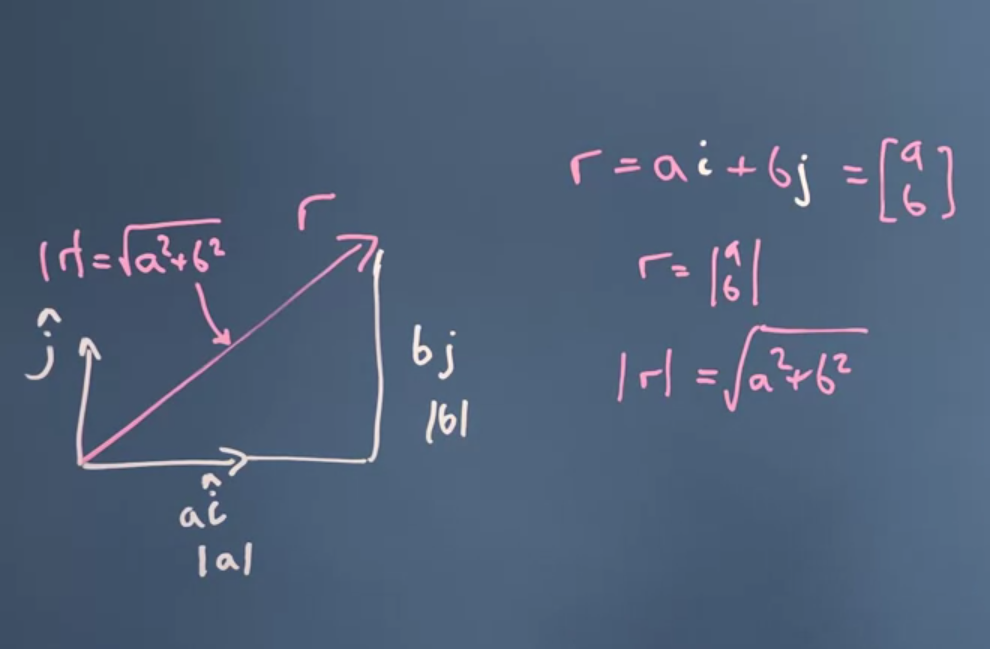 r
|r|=√a²+b²
ĵ
bj
|b|
aî
|a|
r = ai + bj = [a b]
r = |a b|
|r| = √a²+b²